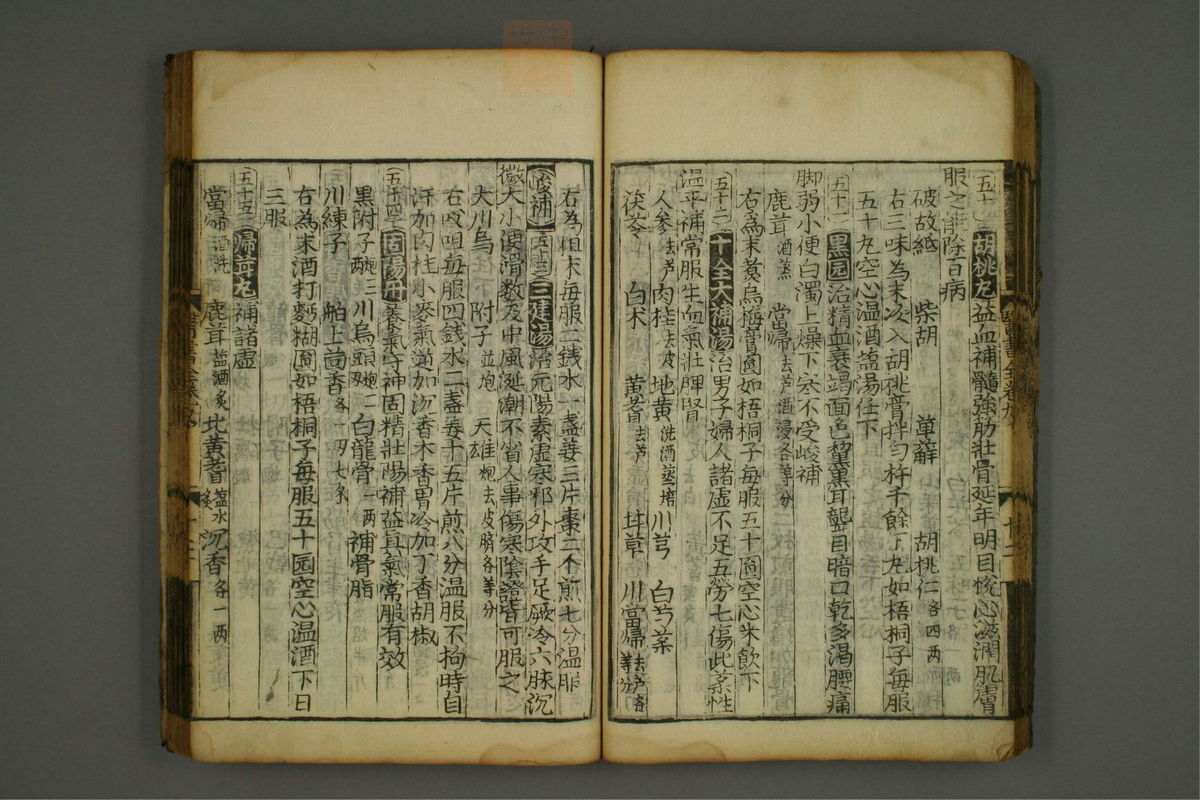 五十一 胡桃丸 益血補髓強筋壯骨延年明目悅心滋潤肌膚
服之能除百病
破故紙 柴胡 萆薢 胡桃仁各四兩
右三味為末次入胡桃膏拌勻杵千餘下丸如梧桐子每服
五十丸空心溫酒鹽湯任下
五十二 黑圓 治精血衰竭面色黧黑耳聾目暗口乾多渴腰痛
脚弱小便白濁上燥下寒不受峻補
鹿茸酒蒸 當歸去芦酒浸各等分
右為末煑烏梅膏圓如梧桐子每服五十圓空心米飲下
五十三 十全大補湯 治男子婦人諸虛不足五勞七傷此藥性
温平補常服生血氣壯脾腎
人參去芦 肉桂去皮 地黃洗酒蒸焙 川芎 白芍藥
茯苓 白术 黃耆去芦 甘草 川當歸去芦各等分
右為咀末每服二錢水一盞姜三片棗二个煎七分温服
峻補 三建湯 治元陽素虛寒邪外攻手足厥冷六脉沉
微大小便滑數及中風涎潮不省人事傷寒陰證皆可服之
大川烏 附子並炮 天雄炮去皮臍各等分
右㕮咀每服四錢水二盞姜十五片煎八分温服不拘時自
汗加肉桂小麥氣逆加沉香木香胃冷加丁香胡椒
五十四 固陽丹 養氣守神固精壯陽補益真氣常服有效
黑附子炮三兩 川烏頭炮二兩 白龍骨一兩 補骨脂
川練子 舶上茴香各一兩七錢
右為末酒打麪糊圓如梧桐子每服五十圓空心温酒下日
三服
五十五 歸茸丸 補諸虛
當歸酒洗 鹿茸鹽酒炙 北黃耆鹽水炙 沉香各一兩